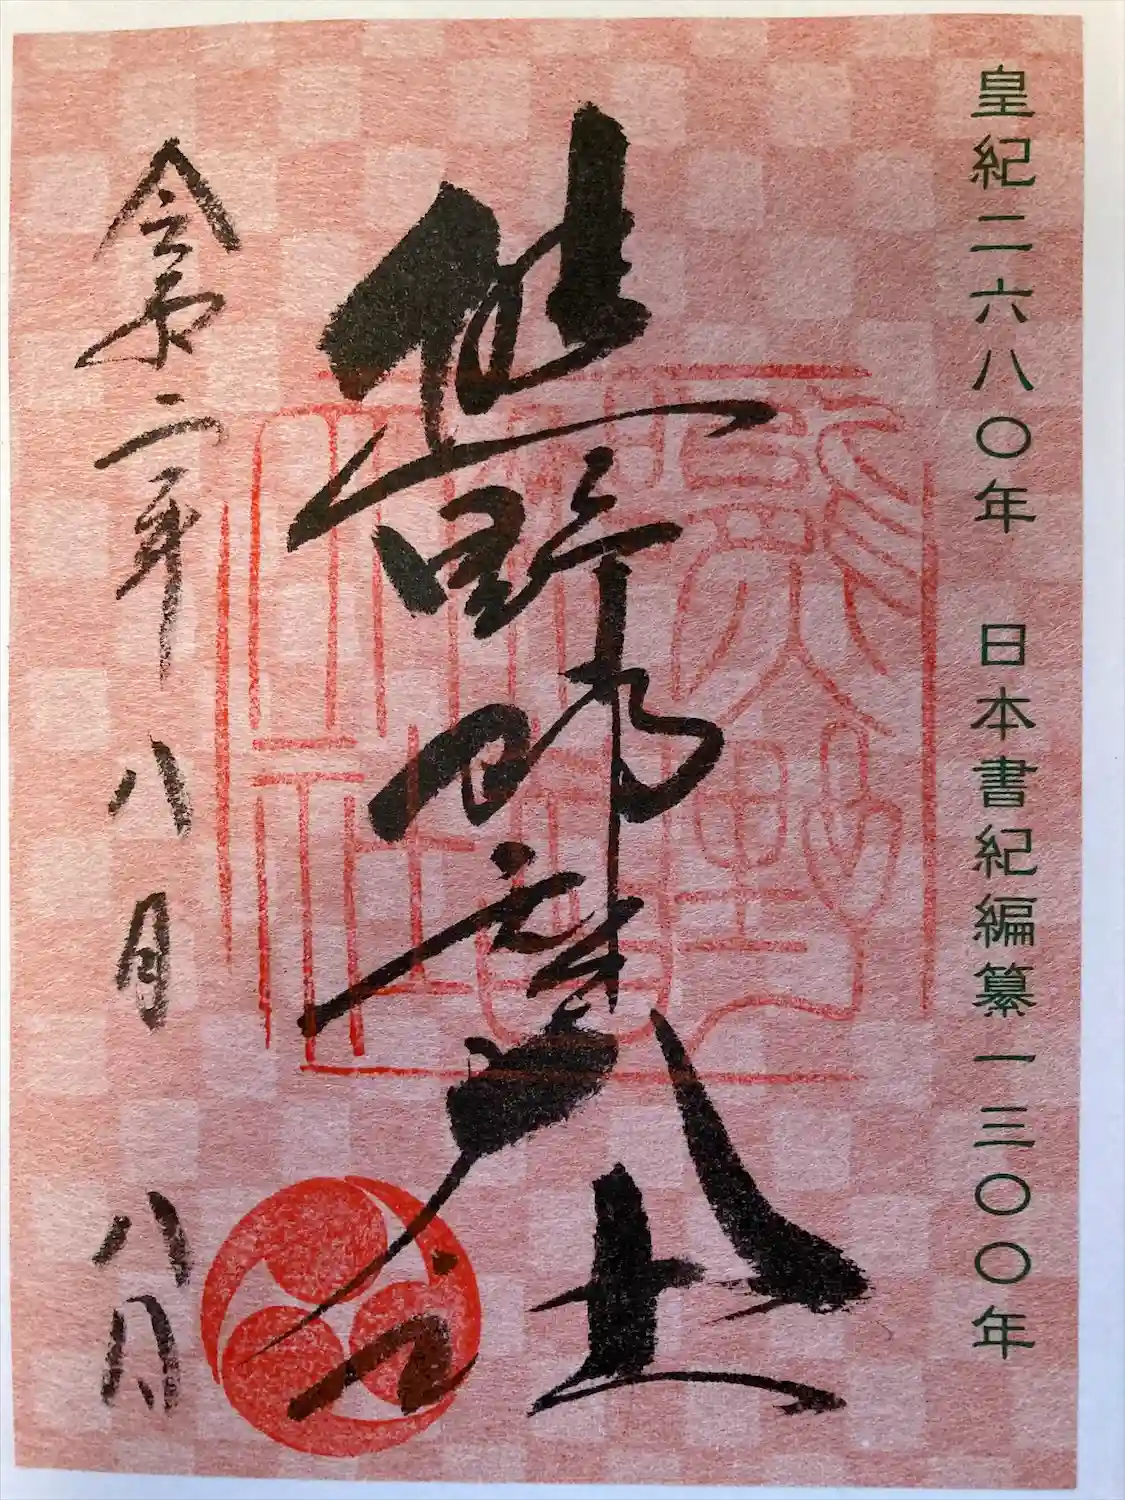 皇紀二六八〇年　日本書紀編纂一三〇〇年
熊野 社
令和二年 八月 八日